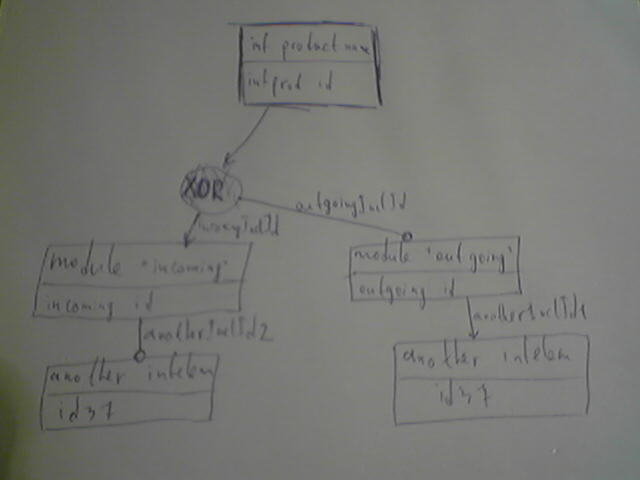 int product max
int prod id
XOR
outgoingInclId
module "incoming"
incoming id
module "outgoing"
outgoing id
anotherInclId2
anotherInclId1
another intelem
id37
another intelem
id37